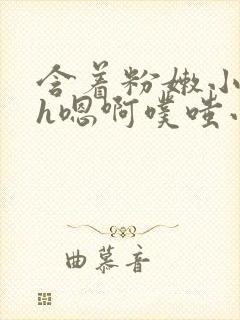 含着粉嫩小
h嗯啊噗嗤小
曲慕音